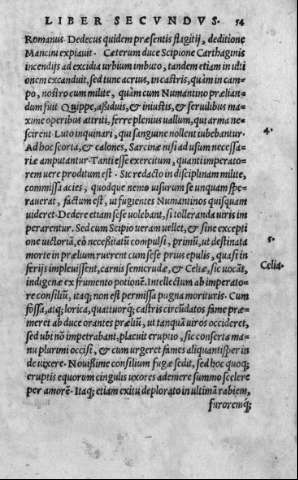 LIBER SECVNDVS. 54
Romanus. Dedecus quidem præsentis flagitij, deditione
Mancini expiauit. Cæterum duce Scipione Carthaginis
incendijs ad excidia urbium imbuto, tandem etiam in ulti
onem excanduit, sed tunc acrius, in castris, quàm in cam=
po, nostro cum milite, quàm cum Numantino præliān=
dum fuit. Quippe, aßiduis, & iniustis, & seruilibus ma=
xime operibus attriti, ferre plenius uallum, qui arma ne=
scirent. Luto inquinari, qui sanguine nollent iubebantur.
Ad hoc scorta, & calones, Sarcinæ nisi ad usum necessa=
riæ amputantur. Tanti esse exercitum, quanti imperato=
rem uere proditum est. Sic redacto in disciplinam milite,
commissa acies, quodque nemo uisurum se unquam spe=
rauerat, factum est, ut fugientes Numantinos quisquam
uideret. Dedere etiam sese uolebant, si tolleranda uiris im
perarentur. Sed cum Scipio ueram uellet, & sine excepti
one uictoriā, eò necesitatū compulsi, primū, ut destinata
morte in prælium ruerent cum sese prius epulis, quasi in
ferijs impleuissent, carnis semicrudæ, & Celiæ, sic uocāt,
indigenæ ex frumento potionē. Intellectum ab imperato=
re consiliū, itaq; non est permissa pugna morituris. Cum
fossa, atq; lorica, quatuorq; castris circūdatos fame præ=
meret ab duce orantes præliū, ut tanquā uiros occideret,
sed ubi nō impetrabant, placuit eruptio, sic conserta ma=
nu plurimi occisi, & cum urgeret fames aliquantisper in
de uixere. Nouißime consilium fugæ sedit, sed hoc quoq;
eruptis equorum cingulis uxores ademere summo scelere
per amorē. Itaq; etiam exitu deplorato in ultimā rabiem,
furoremq;
4.
5.
Celia.